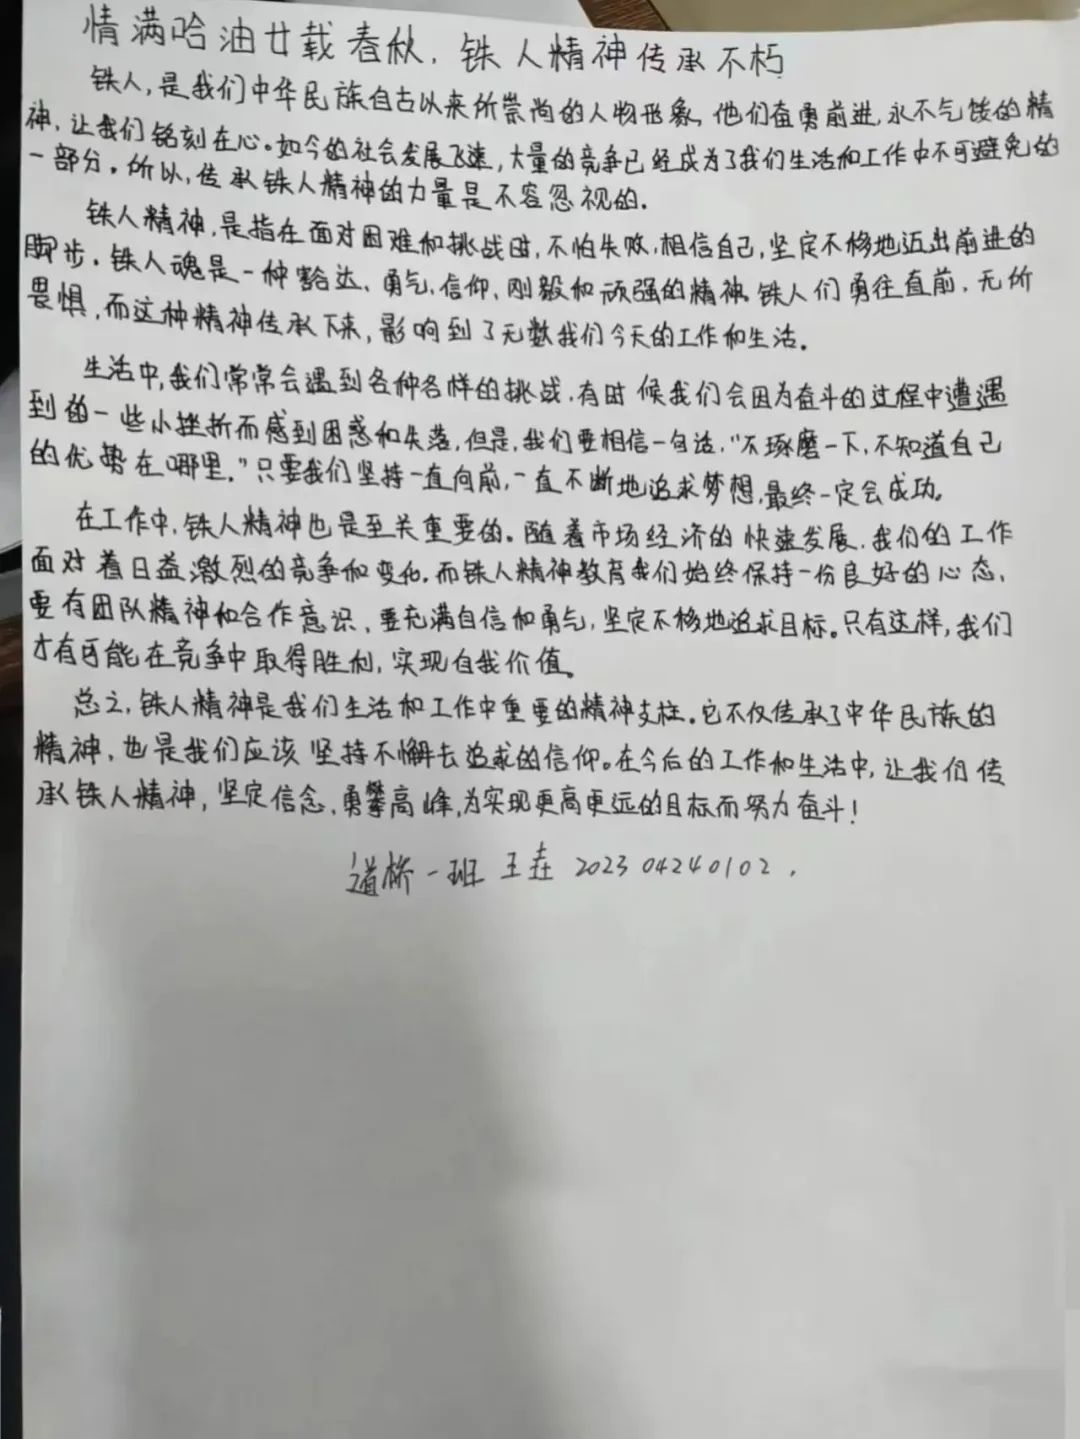 情满哈油廿载春秋，铁人精神传承不朽
铁人，是我们中华民族自古以来所崇尚的人物形象，他们奋勇前进，永不气馁的精
神，让我们铭刻在心。如今的社会发展飞速，大量的竞争已经成为了我们生活和工作中不可避免的
一部分。所以，传承铁人精神的力量是不容忽视的。
铁人精神，是指在面对困难和挑战时，不怕失败，相信自己，坚定不移地迈出前进的
脚步。铁人魂是一种豁达、勇气、信仰、刚毅和顽强的精神。铁人们勇往直前，无所
畏惧，而这种精神传承下来，影响到了无数我们今天的工作和生活。
生活中，我们常常会遇到各种各样的挑战，有时候我们会因为奋斗的过程中遭遇
到的一些小挫折而感到困惑和失落，但是，我们要相信一句话，“不琢磨一下，不知道自己
的优势在哪里。”只要我们坚持一直向前，一直不断地追求梦想，最终一定会成功。
在工作中，铁人精神也是至关重要的。随着市场经济的快速发展，我们的工作
面对着日益激烈的竞争和变化。而铁人精神教育我们始终保持一份良好的心态，
要有团队精神和合作意识，要充满自信和勇气，坚定不移地追求目标。只有这样，我们
才有可能在竞争中取得胜利，实现自我价值。
总之，铁人精神是我们生活和工作中重要的精神支柱。它不仅传承了中华民族的
精神，也是我们应该坚持不懈去追求的信仰。在今后的工作和生活中，让我们传
承铁人精神，坚定信念，勇攀高峰，为实现更高更远的目标而努力奋斗！
道桥一班 王垚 2023 04240102.